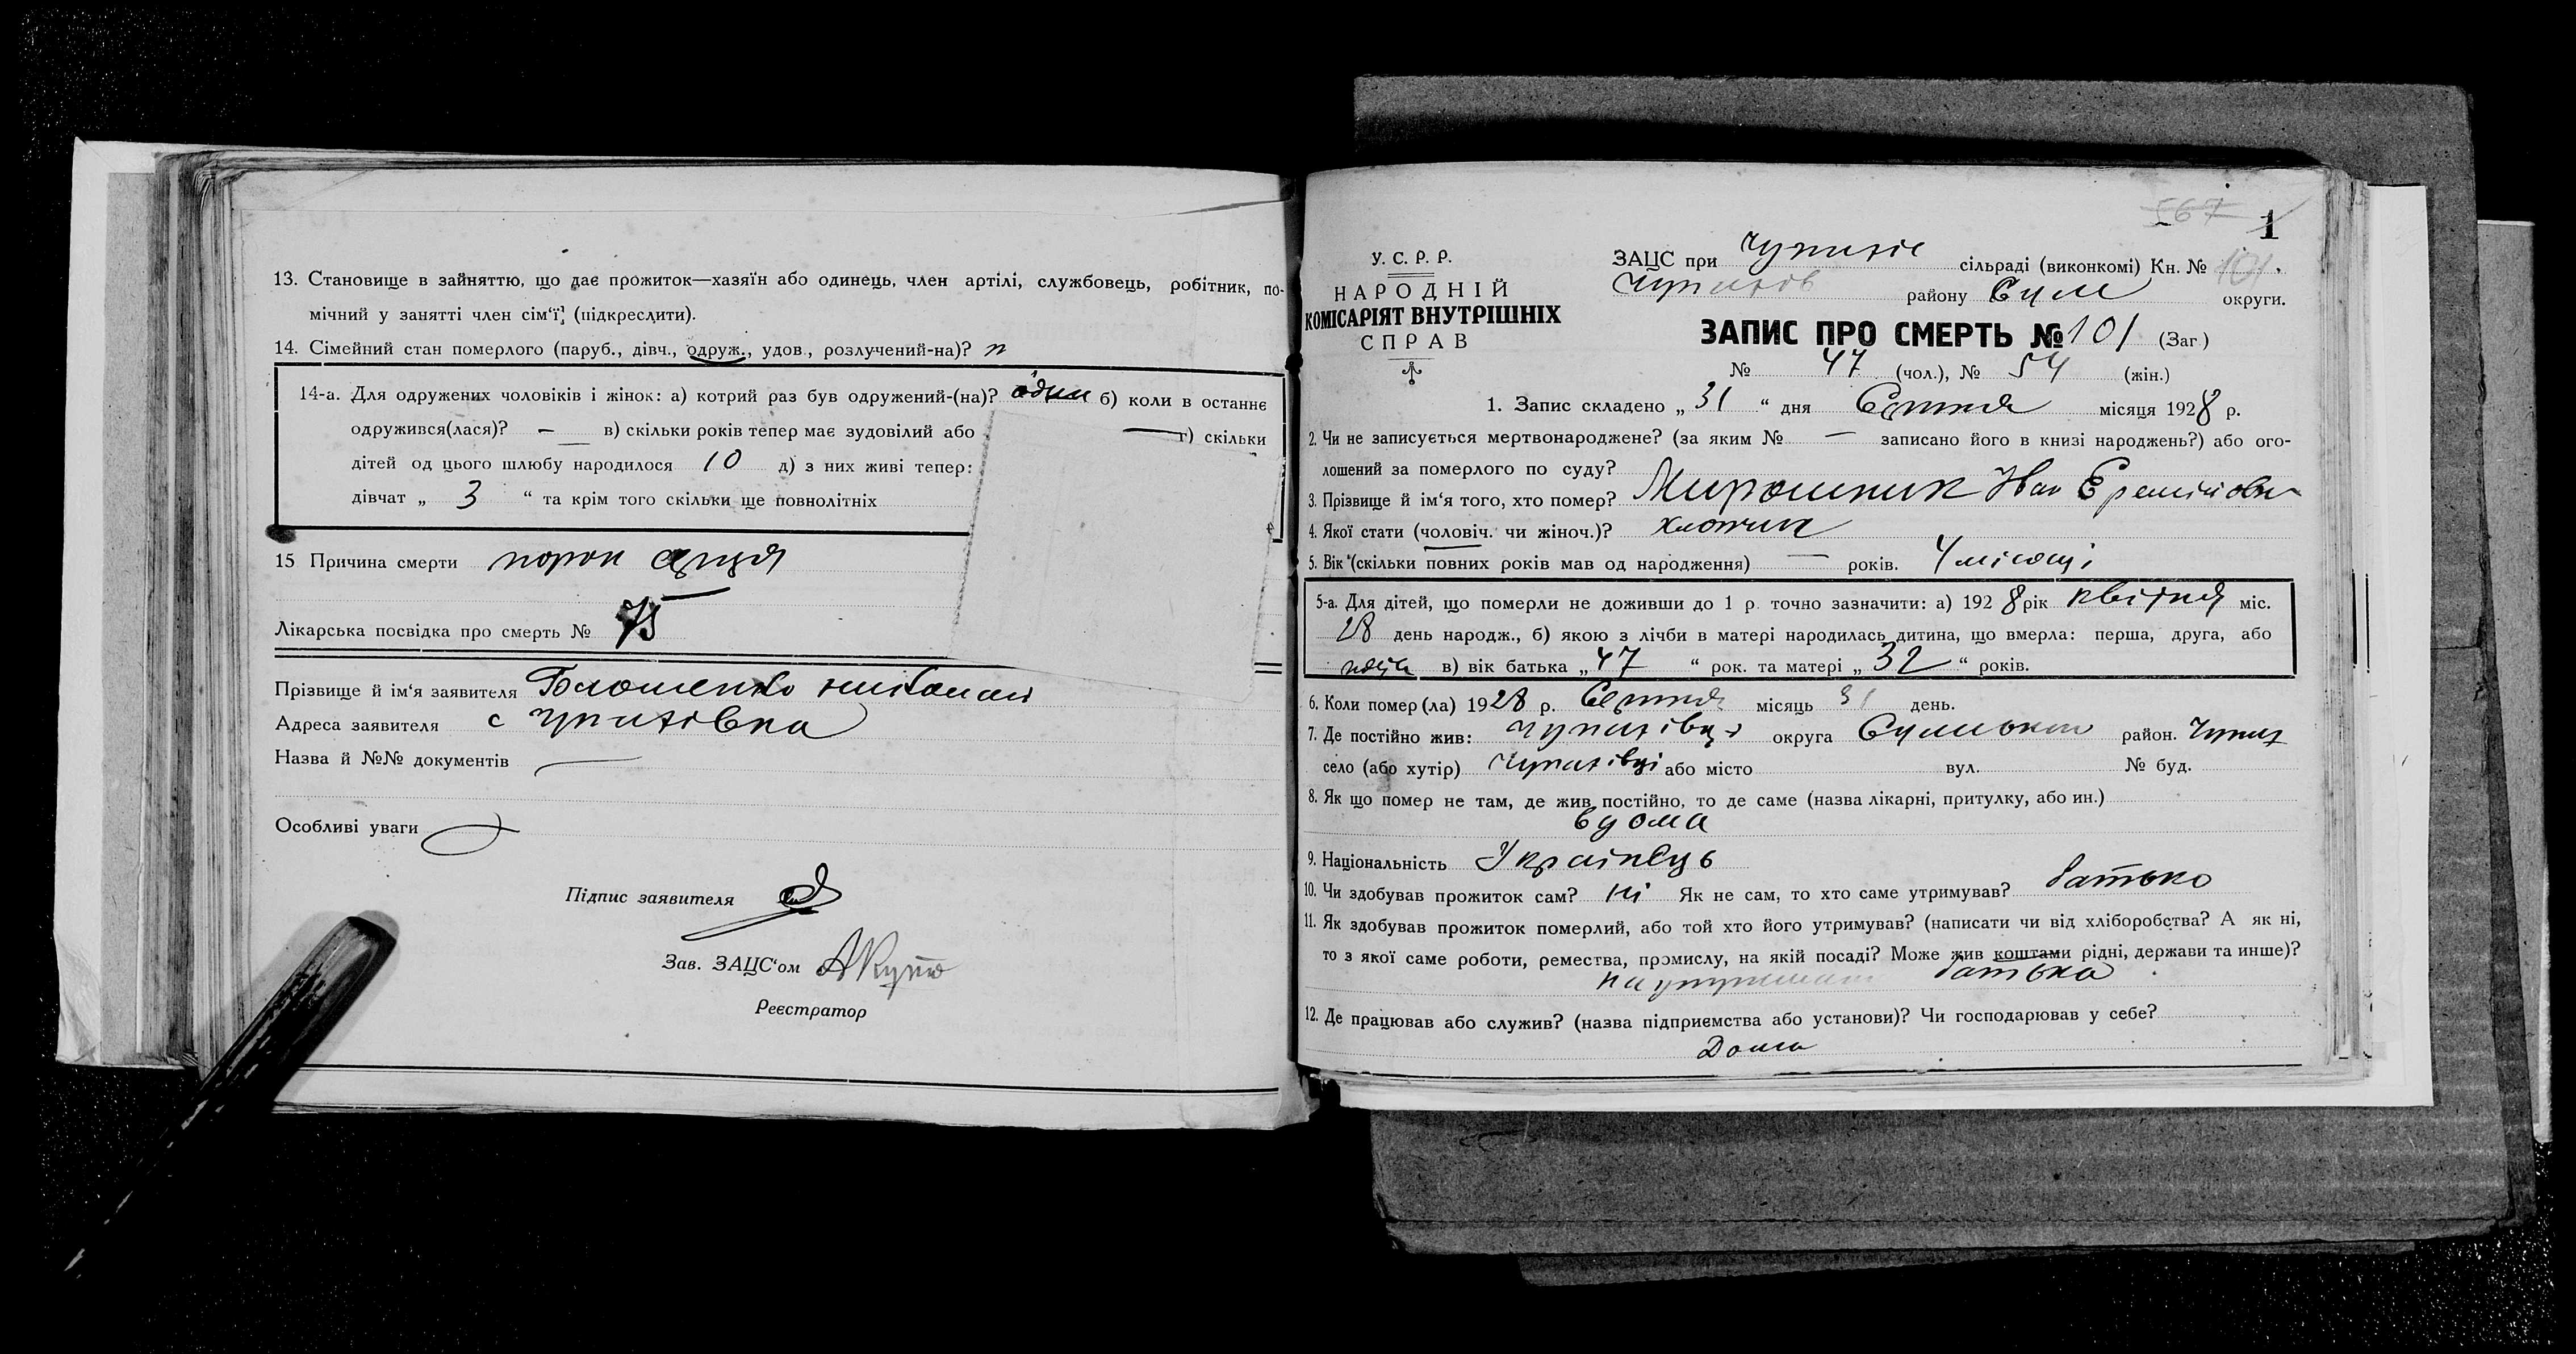 13. Становище в зайняттю, що дає прожиток—хазяїн або одинець, член артілі, службовець, робітник, по-
мічний у занятті член сім‘ї, (підкреслити).
14. Сімейний стан померлого (паруб., дівч., одруж., удов., розлучений-на)? п
14-а. Для одружених чоловіків і жінок: а) котрий раз був одружений-(на)? один б) коли в останнє
одружився(лася)? — в) скільки років тепер має зудовілий або — г) скільки
дітей од цього шлюбу народилося 10 д) з них живі тепер:
дівчат „ 3 “ та крім того скільки ще повнолітніх
15 Причина смерти порок серця
Лікарська посвідка про смерть № 75
Прізвище й ім‘я заявителя
Адреса заявителя с Чупихівка
Назва й №№ документів —
Особливі уваги
Підпис заявителя
Зав. ЗАЦС‘ом
Реєстратор
567 1
У. С. Р. Р.
НАРОДНІЙ
КОМІСАРІЯТ ВНУТРІШНІХ
СПРАВ
ЗАЦС при сільраді (виконкомі) Кн. № 101.
району Сум округи.
ЗАПИС ПРО СМЕРТЬ № 101 (Заг)
№ 47 (чол.), № 54 (жін.)
1. Запис складено „ 31 “ дня Серпня місяця 1928 р.
2. Чи не записується мертвонароджене? (за яким № — записано його в книзі народжень?) або ого-
лошений за померлого по суду?
3. Прізвище й ім‘я того, хто помер? Мирошник Иван Еремійович
4. Якої стати (чоловіч. чи жіноч.)? хлопчик
5. Вік (скільки повних років мав од народження) — років. 4 місяці
5-а. Для дітей, що померли не доживши до 1 р. точно зазначити: а) 1928 рік квітня міс.
28 день народж., б) якою з лічби в матері народилась дитина, що вмерла: перша, друга, або
в) вік батька „ 47 “ рок. та матері „ 32 “ років.
6. Коли помер (ла) 1928 р. Серпня місяць 31 день.
7. Де постійно жив: Чупихівці округа Сумської район. Чупих
село (або хутір) Чупихівці або місто вул. № буд.
8. Як що помер не там, де жив постійно, то де саме (назва лікарні, притулку, або ин.)
вдома
9. Національність Українець
10. Чи здобував прожиток сам? ні Як не сам, то хто саме утримував? батько
11. Як здобував прожиток померлий, або той хто його утримував? (написати чи від хліборобства? А як ні,
то з якої саме роботи, ремества, промислу, на якій посаді? Може жив коштами рідні, держави та инше)?
на батька
12. Де працював або служив? (назва підприємства або установи)? Чи господарював у себе?
Дома